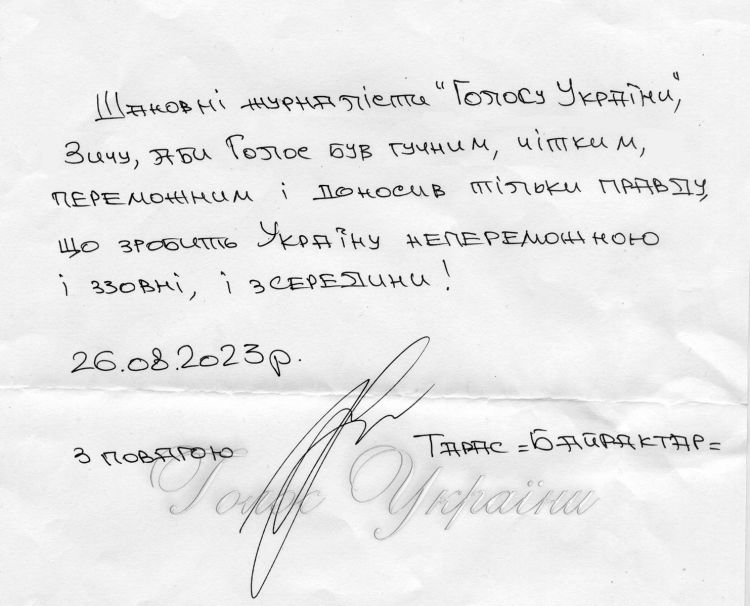 Шановні журналісти "Голосу України",
Зичу, аби Голос був гучним, чітким,
переможним і доносив тільки правду,
що зробить Україну непереможною
і ззовні, і зсередини!
26.08.2023р.
З повагою Тарас =Байрактар=
Голос України